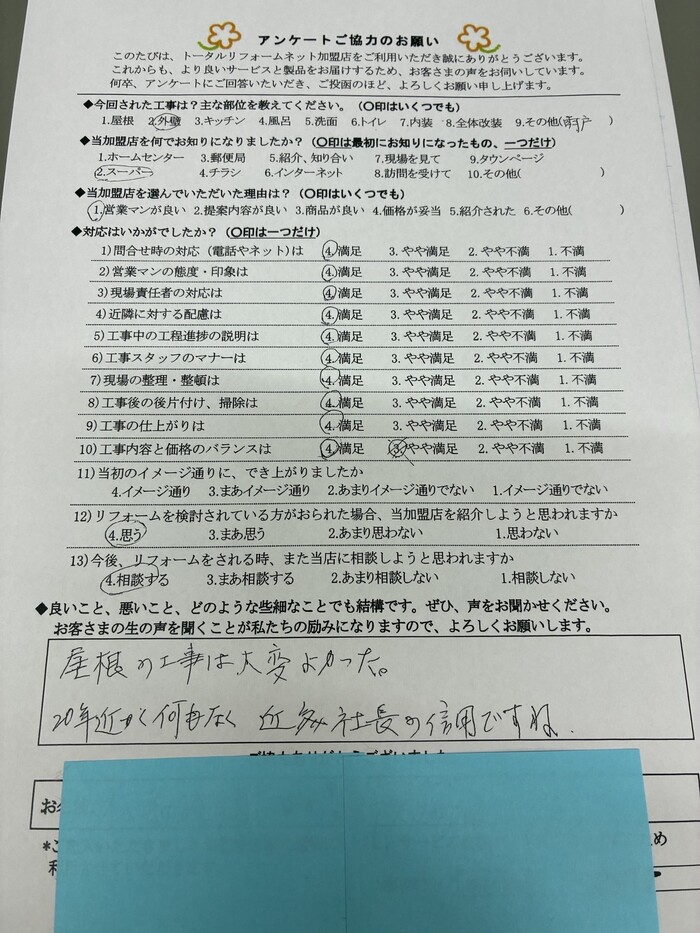 アンケートご協力のお願い
このたびは、トータルリフォームネット加盟店をご利用いただき誠にありがとうございます。
これからも、より良いサービスと製品をお届けするため、お客さまの声をお伺いしています。
何卒、アンケートにご回答いただき、ご投函のほど、よろしくお願い申し上げます。
◆今回された工事は?主な部位を教えてください。(〇印はいくつでも)
1.屋根 2.外壁 3.キッチン 4.風呂 5.洗面 6.トイレ 7.内装 8.全体改装 9.その他(雨戸)
◆当加盟店を何でお知りになりましたか?(〇印は最初にお知りになったもの、一つだけ)
1.ホームセンター 3.郵便局 5.紹介、知り合い 7.現場を見て 9.タウンページ
2.スーパー 4.チラシ 6.インターネット 8.訪問を受けて 10.その他( )
◆当加盟店を選んでいただいた理由は?(〇印はいくつでも)
1.営業マンが良い 2.提案内容が良い 3.商品が良い 4.価格が妥当 5.紹介された 6.その他( )
◆対応はいかがでしたか?(〇印は一つだけ)
1)問合せ時の対応(電話やネット)は 4.満足 3.やや満足 2.やや不満 1.不満
2)営業マンの態度・印象は 4.満足 3.やや満足 2.やや不満 1.不満
3)現場責任者の対応は 4.満足 3.やや満足 2.やや不満 1.不満
4)近隣に対する配慮は 4.満足 3.やや満足 2.やや不満 1.不満
5)工事中の工程進捗の説明は 4.満足 3.やや満足 2.やや不満 1.不満
6)工事スタッフのマナーは 4.満足 3.やや満足 2.やや不満 1.不満
7)現場の整理・整頓は 4.満足 3.やや満足 2.やや不満 1.不満
8)工事後の後片付け、掃除は 4.満足 3.やや満足 2.やや不満 1.不満
9)工事の仕上がりは 4.満足 3.やや満足 2.やや不満 1.不満
10)工事内容と価格のバランスは 4.満足 3.やや満足 2.やや不満 1.不満
11)当初のイメージ通りに、でき上がりましたか
4.イメージ通り 3.まあイメージ通り 2.あまりイメージ通りでない 1.イメージ通りでない
12)リフォームを検討されている方がおられた場合、当加盟店を紹介しようと思われますか
4.思う 3.まあ思う 2.あまり思わない 1.思わない
13)今後、リフォームをされる時、また当店に相談しようと思われますか
4.相談する 3.まあ相談する 2.あまり相談しない 1.相談しない
◆良いこと、悪いこと、どのような些細なことでも結構です。ぜひ、声をお聞かせください。
お客さまの生の声を聞くことが私たちの励みになりますので、よろしくお願いします。
屋根の工事は大変よかった。
20年近く何もなく 近 社長の信用ですね.